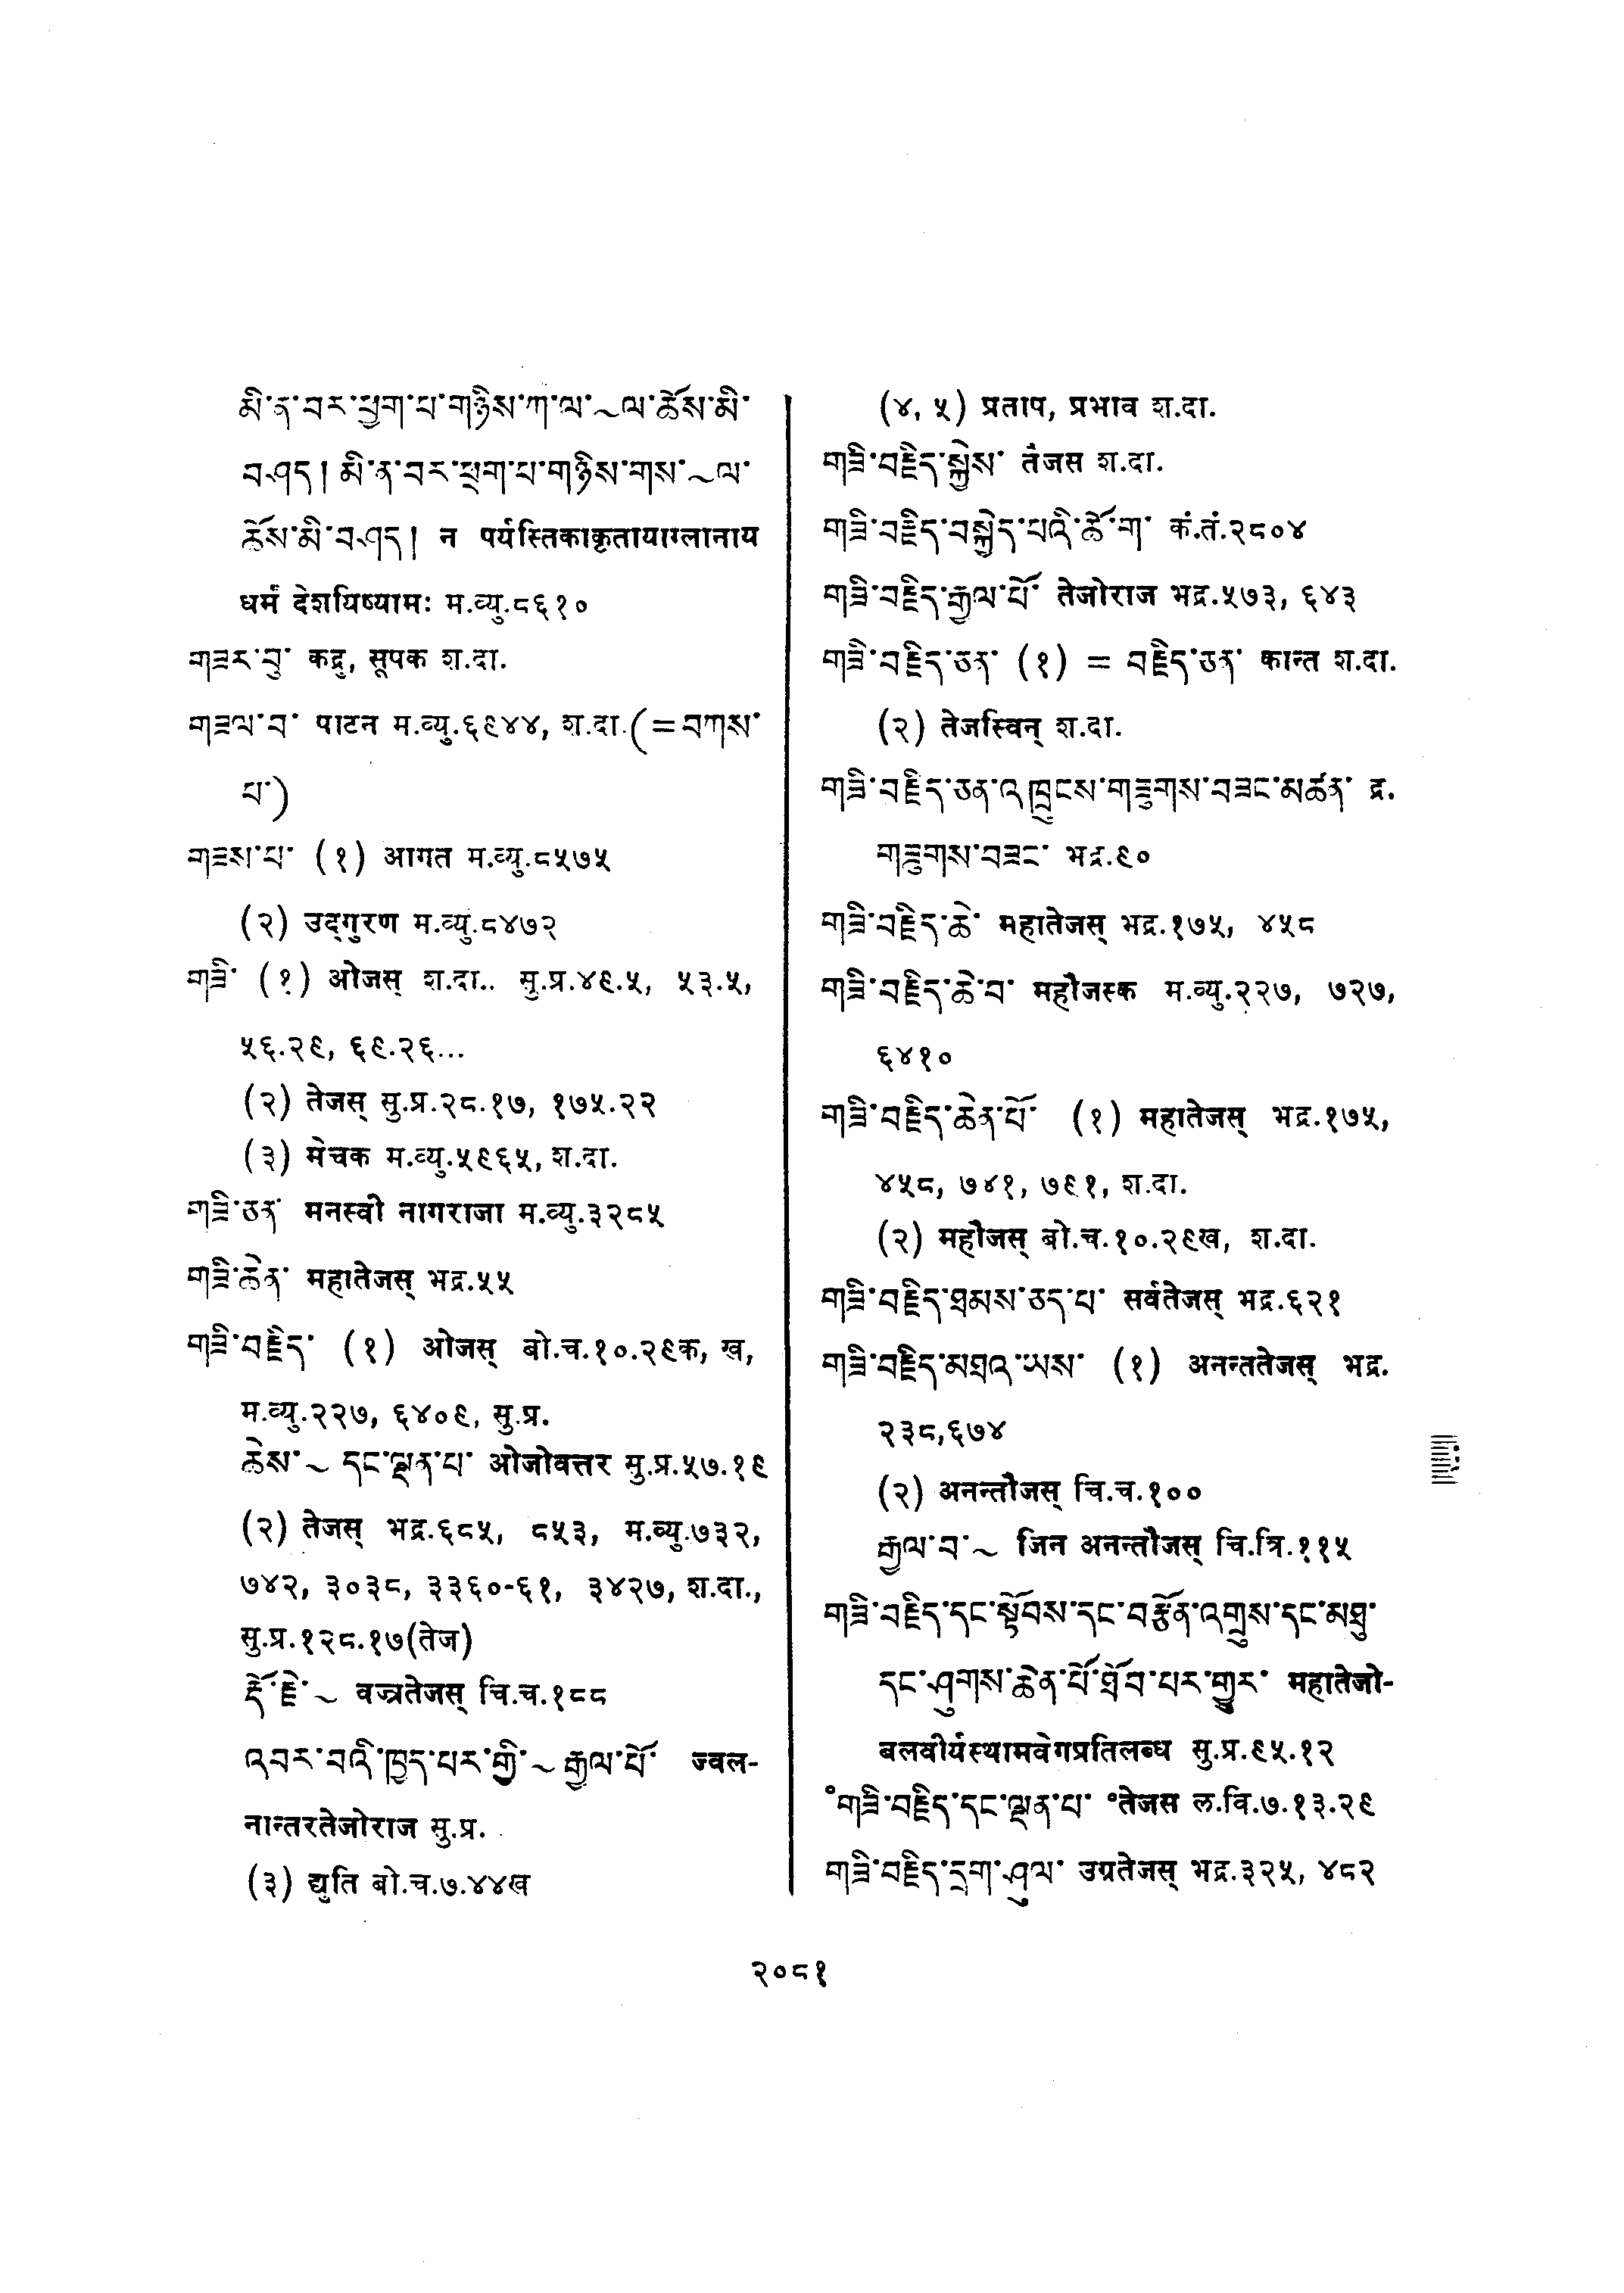 མི་ན་བར་ཕྱག་པ་གཉིས་ཀ་ལ་~ལ་ཆོས་མི་
བཤད། མི་ན་བར་ཕྲག་པ་གཉིས་གས་~ལ་
ཆོས་མི་བཤད། न पर्यस्तिकाकृतायाग्लानाय
धर्मं देशयिष्यामः म.व्यु.८६१०
གཟར་བུ་ कद्रु, स्रूपक श.दा.
གཟལ་བ་ पाटन म.व्यु.६९४४, श.दा.(=བཀས་
པ་)
གཟས་པ་ (१) आगत म.व्यु.८५७५
(२) उद्गुरण म.व्यु.८४७२
གཟི་ (१) ओजस् श.दा.. सु.प्र.४९.५, ५३.५,
५६.२९, ६९.२६...
(२) तेजस् सु.प्र.२८.१७, १७५.२२
(३) मेचक म.व्यु.५९६५, श.दा.
གཟི་ཅན་ मनस्वी नागराजा म.व्यु.३२८५
གཟི་ཆེན་ महातेजस् भद्र.५५
གཟི་བརྗིད་ (१) ओजस् बो.च.१०.२९क, ख,
म.व्यु.२२७, ६४०९, सु.प्र.
ཆེས་~ དང་ལྡན་པ་ ओजोवत्तर सु.प्र.५७.१९
(२) तेजस् भद्र.६८५, ८५३, म.व्यु.७३२,
७४२, ३०३८, ३३६०-६१, ३४२७, श.दा.,
सु.प्र.१२८.१७(तेज)
རྡོ་རྗེ་~ वज्रतेजस् चि.च.१८८
འབར་བའི་ཁྱད་པར་གྱི་~རྒྱལ་པོ་ ज्वल-
नान्तरतेजोराज सु.प्र.
(३) द्युति बो.च.७.४४ख
(४, ५) प्रताप, प्रभाव श.दा.
གཟི་བརྗིད་སྐྱེས་ तैजस श.दा.
གཟི་བརྗིད་བསྐྱེད་པའི་ཆོ་ག་ कं.तं.२८०४
གཟི་བརྗིད་རྒྱལ་པོ་ तेजोराज भद्र.५७३, ६४३
གཟི་བརྗིད་ཅན་ (१) = བརྗིད་ཅན་ कान्त श.दा.
(२) तेजस्विन् श.दा.
གཟི་བརྗིད་ཅན་འཁྲུངས་གཟུགས་བཟང་མཚན་ द्र.
གཟུགས་བཟང་ भद्र.९०
གཟི་བརྗིད་ཆེ་ महातेजस् भद्र.१७५, ४५८
གཟི་བརྗིད་ཆེ་བ་ महौजस्क म.व्यु.२२७, ७२७,
६४१०
གཟི་བརྗིད་ཆེན་པོ་ (१) महातेजस् भद्र.१७५,
४५८, ७४१, ७९१, श.दा.
(२) महौजस् बो.च.१०.२९ख, श.दा.
གཟི་བརྗིད་ཐམས་ཅད་པ་ सर्वतेजस् भद्र.६२१
གཟི་བརྗིད་མཐའ་ཡས་ (१) अनन्ततेजस् भद्र.
२३८,६७४
(२) अनन्तौजस् चि.च.१००
རྒྱལ་བ་~ जिन अनन्तौजस् चि.त्रि.११५
གཟི་བརྗིད་དང་སྟོབས་དང་བརྩོན་འགྲུས་དང་མཐུ་
དང་ཤུགས་ཆེན་པོ་ཐོབ་པར་གྱུར་ महातेजो-
बलवीर्यस्थामवेगप्रतिलब्ध सु.प्र.९५.१२
°གཟི་བརྗིད་དང་ལྡན་པ་ °तेजस ल.वि.७.१३.२९
གཟི་བརྗིད་དྲག་ཤུལ་ उग्रतेजस् भद्र.३२५, ४८२
२०८१